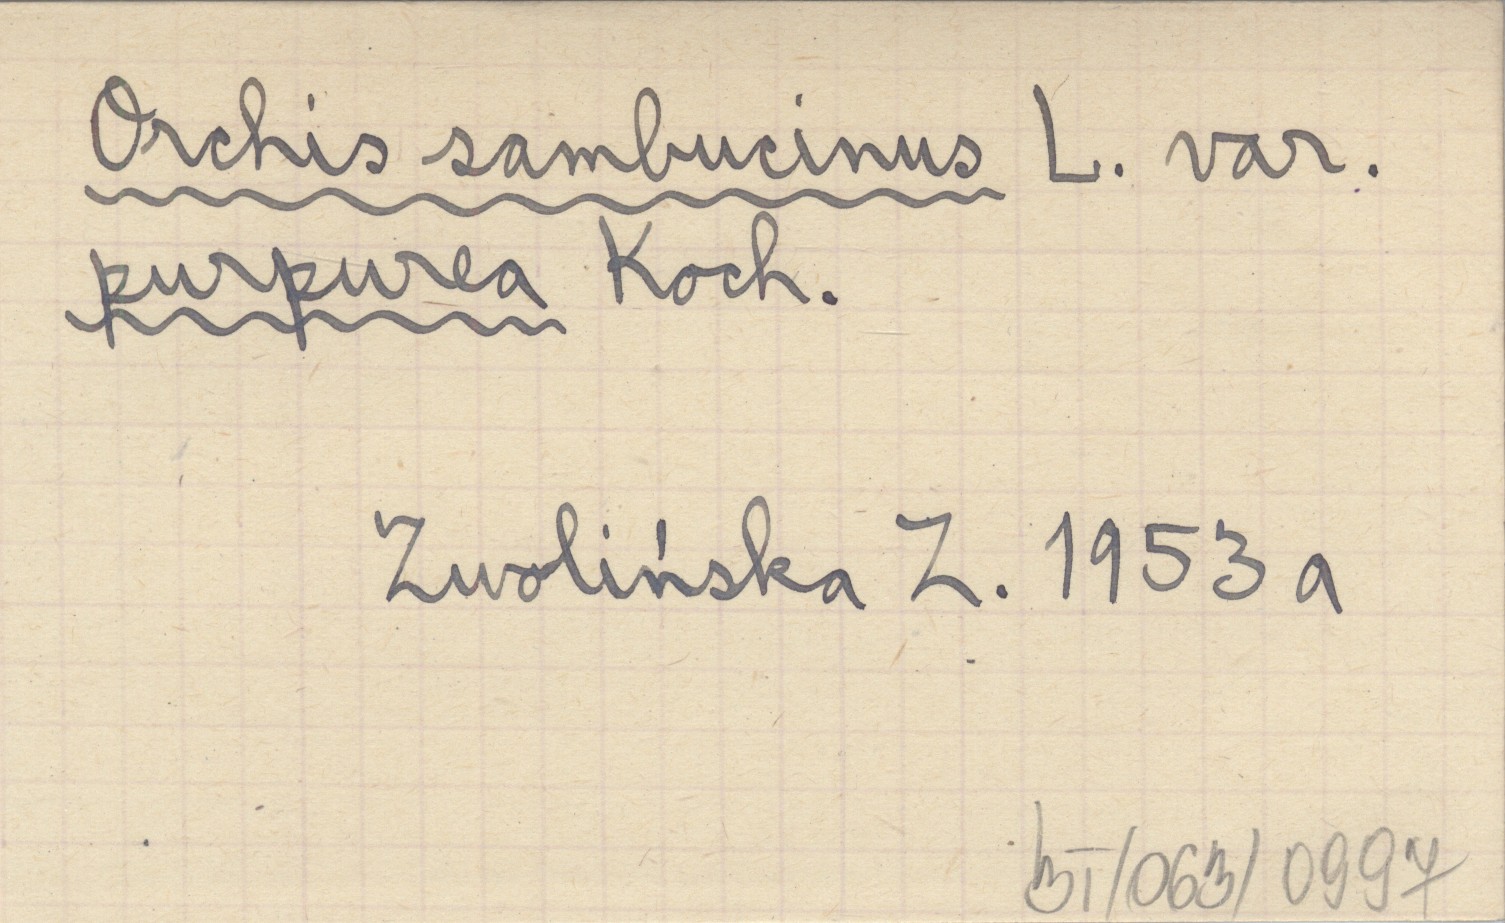 Orchis sambucinus L. var.
purpurea Koch.
Zwolińska Z. 1953 a
/063/0997